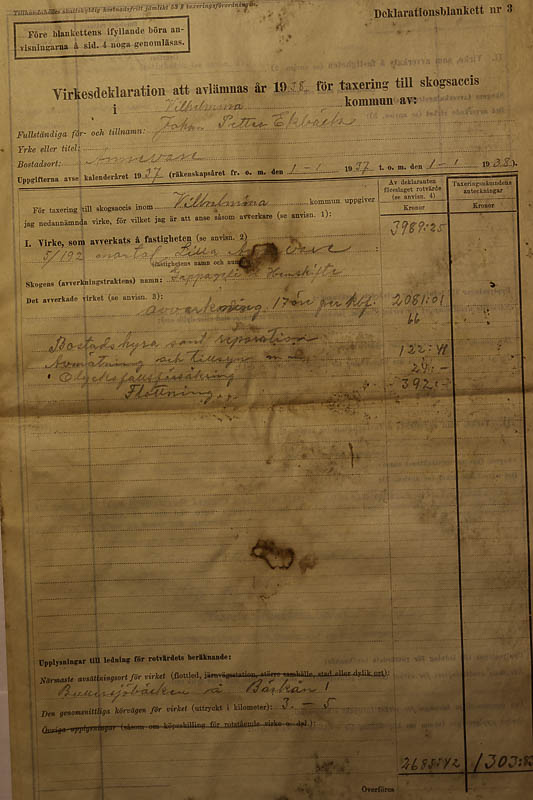 Tillhandahålles skattskyldig kostnadsfritt jämlikt 53 § taxeringsförordningen.
Deklarationsblankett nr 3
Före blankettens ifyllande böra an-
visningarna å sid. 4 noga genomläsas.
Virkesdeklaration att avlämnas år 1938 för taxering till skogsaccis
i Vilhelmina kommun av:
Fullständiga för- och tillnamn: Johan Petter
Yrke eller titel:
Bostadsort:
Uppgifterna avse kalenderåret 1937 (räkenskapsåret fr. o. m. den 1 - 1 1937 t. o. m. den 1 - 1 1938).
Av deklaranten föreslaget rotvärde (se anvisn. 4)
Taxeringsnämndens anteckningar
Kronor
Kronor
För taxering till skogsaccis inom Vilhelmina kommun uppgiver
jag nedannämnda virke, för vilket jag är att anse såsom avverkare (se anvisn. 1):
3989:25
I. Virke, som avverkats å fastigheten (se anvisn. 2)
5/192 mantal Lilla
(fastighetens namn och
Skogens (avverkningstraktens) namn: Hemskifte
Det avverkade virket (se anvisn. 3):
avverkning 17 öre per kbf. 2081:01
Bostadshyra samt reparation 66
Avmätning och tillsyn m m 122:41
Olycksfallsförsäkring 24:-
Flottning 392:-
Upplysningar till ledning för rotvärdets beräknande:
Närmaste avsättningsort för virket (flottled, järnvägsstation, större samhälle, stad eller dylik ort):
å Bäskån!
Den genomsnittliga körvägen för virket (uttryckt i kilometer): 3 - 5
Övriga upplysningar (såsom om köpeskilling för rotstående virke o. dyl.):
2685:42 1303:83
Överföres